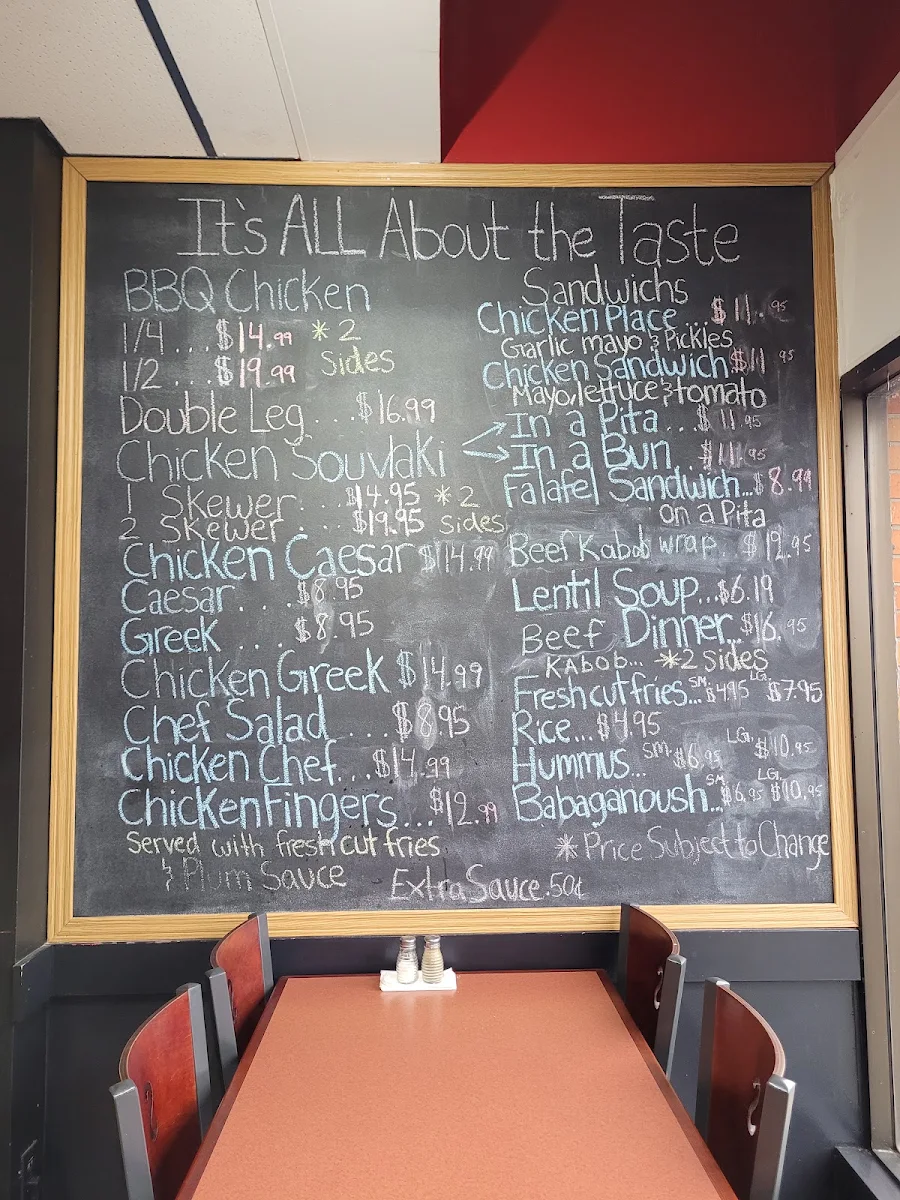 It's ALL About the Taste
BBQ Chicken
1/4 ... $14.99 * 2
1/2 ... $19.99 Sides
Double Leg ... $16.99
Chicken Souvlaki
1 Skewer ... $14.95 * 2
2 Skewer ... $19.95 sides
Chicken Caesar $14.99
Caesar ... $8.95
Greek .... $8.95
Chicken Greek $14.99
Chef Salad .... $8.95
Chicken Chef... $14.99
Chicken Fingers... $12.99
Served with fresh cut fries
& Plum Sauce
Extra Sauce .50¢
Sandwichs
Chicken Place ... $11.95
Garlic mayo & Pickles
Chicken Sandwich $11 95
Mayo, lettuce & tomato
In a Pita ... $11.95
In a Bun .. $11.95
Falafel Sandwich... $8.99
on a Pita
Beef Kabob wrap. $12.95
Lentil Soup... $6.19
Beef Dinner... $16.95
KABOB... *2 sides
Fresh cut fries... SM. $4.95 LG. $7.95
Rice... $4.95
Hummus... SM. $6.95 LG. $10.95
Babaganoush... SM $6.95 LG. $10.95
* Price Subject to Change